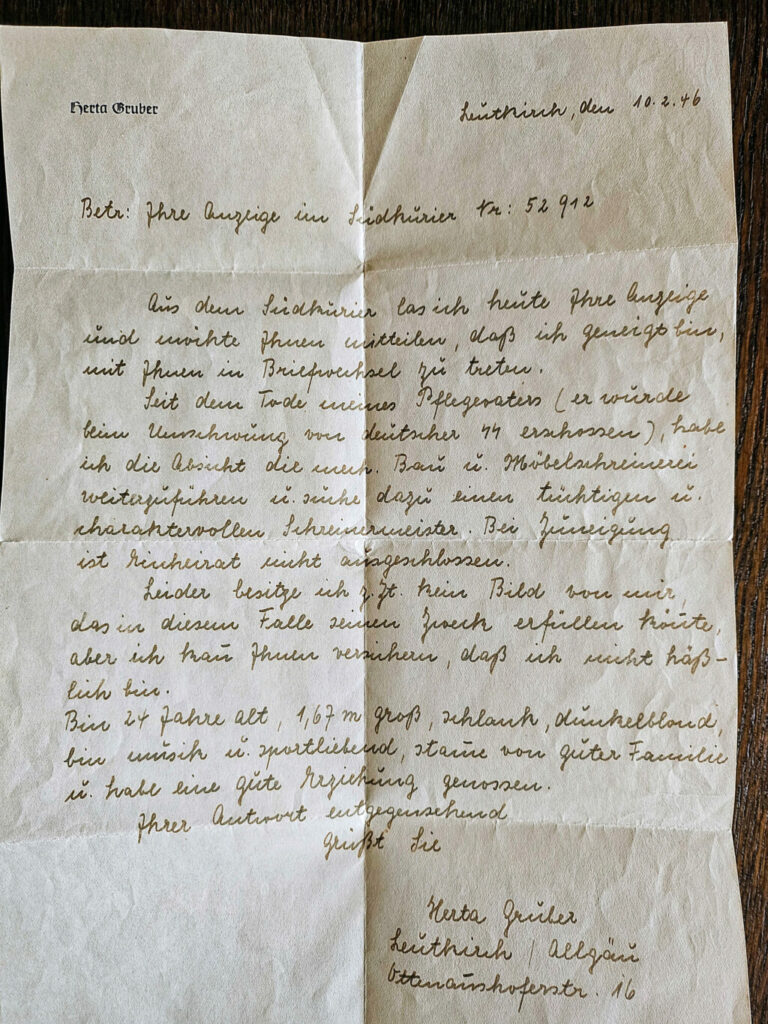 Herta Gruber
Leutkirch, den 10.2.46
Betr: Ihre Anzeige im Südkurier Nr: 52 912
Aus dem Südkurier las ich heute Ihre Anzeige
und möchte Ihnen mitteilen, daß ich geneigt bin,
mit Ihnen in Briefwechsel zu treten.
Seit dem Tode meines Pflegevaters (er wurde
beim Umschwung von deutscher SS erschossen), habe
ich die Absicht die mech. Bau u. Möbelschreinerei
weiterzuführen u. suche dazu einen tüchtigen u.
charaktervollen Schreinermeister. Bei Zuneigung
ist Einheirat nicht ausgeschlossen.
Leider besitze ich z. Zt. kein Bild von mir
das in diesem Falle seinen Zweck erfüllen kön̄te,
aber ich kan̄ Ihnen versichern, daß ich nicht häß-
lich bin.
Bin 24 Jahre alt, 1,67 m groß, schlank, dunkelblond,
bin musik u. sportliebend, stam̄e von guter Familie
u. habe eine gute Erziehung genossen.
Ihrer Antwort entgegensehend
grüßt Sie
Herta Gruber
Leutkirch / Allgäu
Ottmannshoferstr. 16